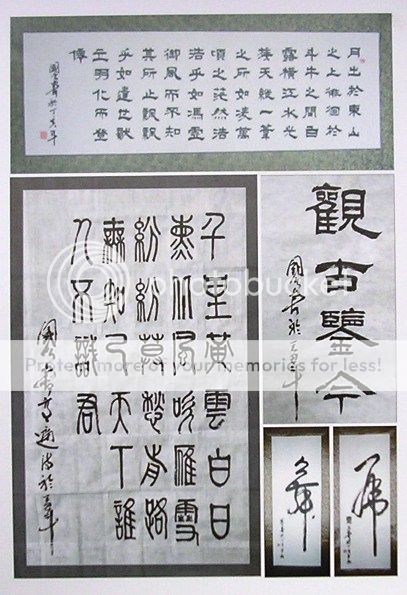 月出於東山
之上徘徊於
斗牛之間白
露橫江水光
接天縱一葦
之所如凌萬
頃之茫然浩
浩乎如馮虛
御風而不知
其所止飄飄
乎如遺世獨
立羽化而登
僊
於丁亥年
千里黃雲白日
熏北風吹雁雪
紛紛莫愁前路
無知己天下誰
人不識君
高適詩於
年
觀古鑒今
舞
虎
photobucket
Protect more of your memories for less!